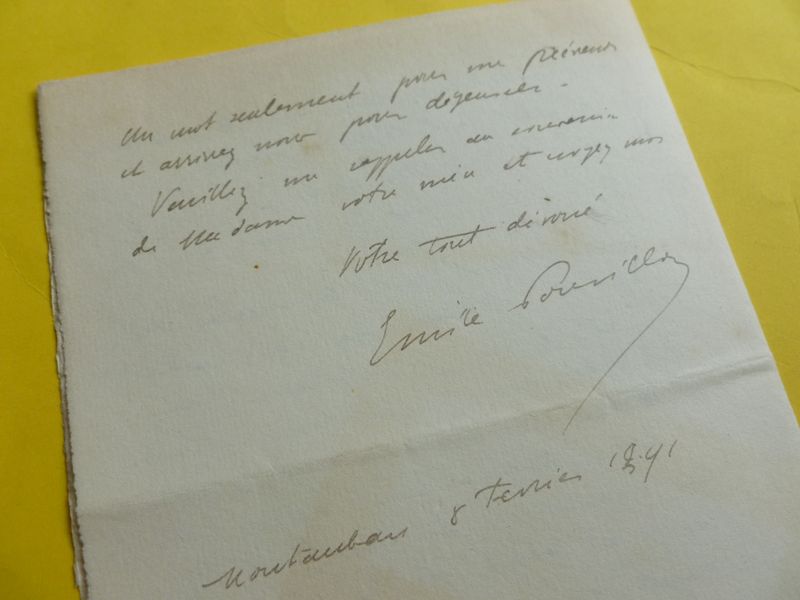 Un mot seulement pour me prévenir
et arrivez nous pour déjeuner.
Veuillez me rappeler au souvenir
de Madame votre mère et croyez moi
Votre tout dévoué
Emile Pouvillon
Montauban 8 fevrier 1891